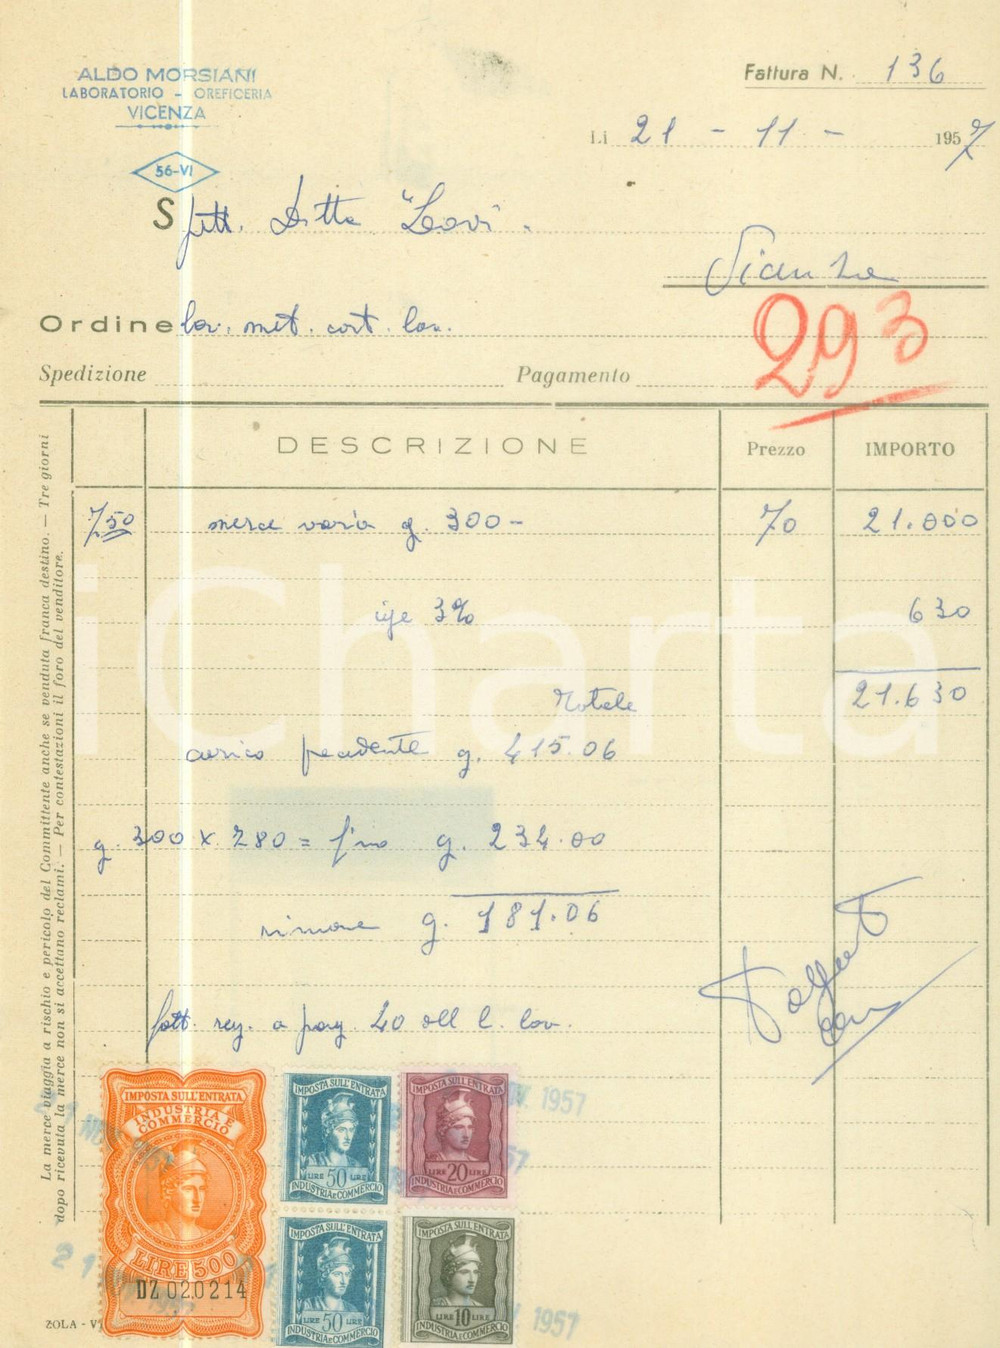 ALDO MORSIANI
LABORATORIO - OREFICERIA
VICENZA
56-VI
Fattura N. 136
Li 21 - 11 - 1957
Spett. Ditta "Lovi".
Ordine lav. met. cort. lav.
293
Spedizione Pagamento
DESCRIZIONE Prezzo IMPORTO
7,50 merce varia g. 300- 70 21.000
ige 3% 630
Totale 21.630
carico precedente g. 415.06
g. 300 x 780 = fino g. 234.00
rimane g. 181.06
fatt. a 20 lav.
La merce viaggia a rischio e pericolo del Committente anche se venduta franca destino. — Tre giorni
dopo ricevuta la merce non si accettano reclami. — Per contestazioni il foro del venditore.
iCharta
IMPOSTA SULL'ENTRATA
INDUSTRIA E
COMMERCIO
LIRE 500
DZ 020214
IMPOSTA SULL'ENTRATA
LIRE 50 LIRE
INDUSTRIA E COMMERCIO
IMPOSTA SULL'ENTRATA
LIRE 20 LIRE
INDUSTRIA E COMMERCIO
IMPOSTA SULL'ENTRATA
LIRE 50 LIRE
INDUSTRIA E COMMERCIO
IMPOSTA SULL'ENTRATA
LIRE 10 LIRE
INDUSTRIA E COMMERCIO
1957
1957
ZOLA - V